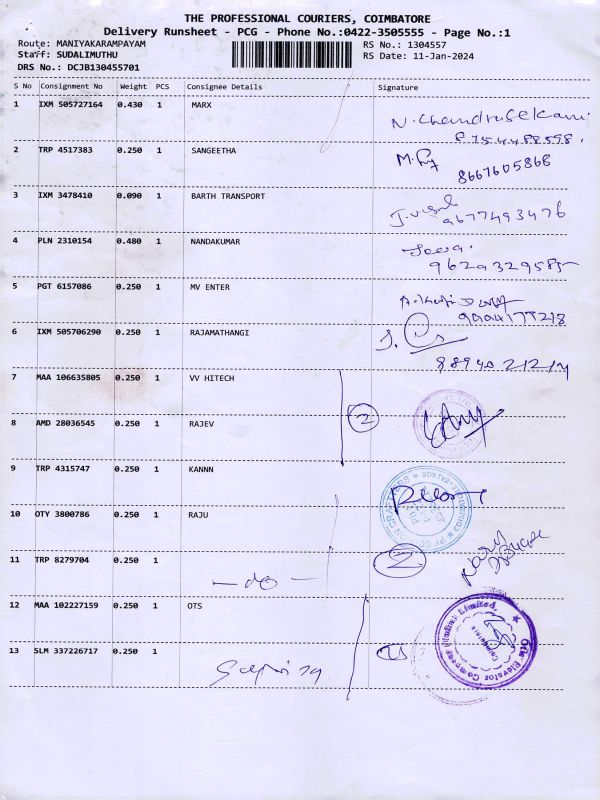 THE PROFESSIONAL COURIERS, COIMBATORE
Delivery Runsheet - PCG - Phone No.:0422-3505555 - Page No.:1
Route: MANIYAKARAMPAYAM RS No.: 1304557
Staff: SUDALIMUTHU RS Date: 11-Jan-2024
DRS No.: DCJB130455701
S No Consignment No Weight PCS Consignee Details Signature
1 IXM 505727164 0.430 1 MARX
N. Chandrasekani
8754488598.
2 TRP 4517383 0.250 1 SANGEETHA
8667605868
3 IXM 3478410 0.090 1 BARTH TRANSPORT
9677493476
4 PLN 2310154 0.480 1 NANDAKUMAR
9629329585
5 PGT 6157086 0.250 1 MV ENTER
6 IXM 505706290 0.250 1 RAJAMATHANGI
7 MAA 106635805 0.250 1 VV HITECH
2
8 AMD 28036545 0.250 1 RAJEV
9 TRP 4315747 0.250 1 KANNN
10 OTY 3800786 0.250 1 RAJU
11 TRP 8279704 0.250 1
-do-
2
12 MAA 102227159 0.250 1 OTS
13 SLM 337226717 0.250 1
1